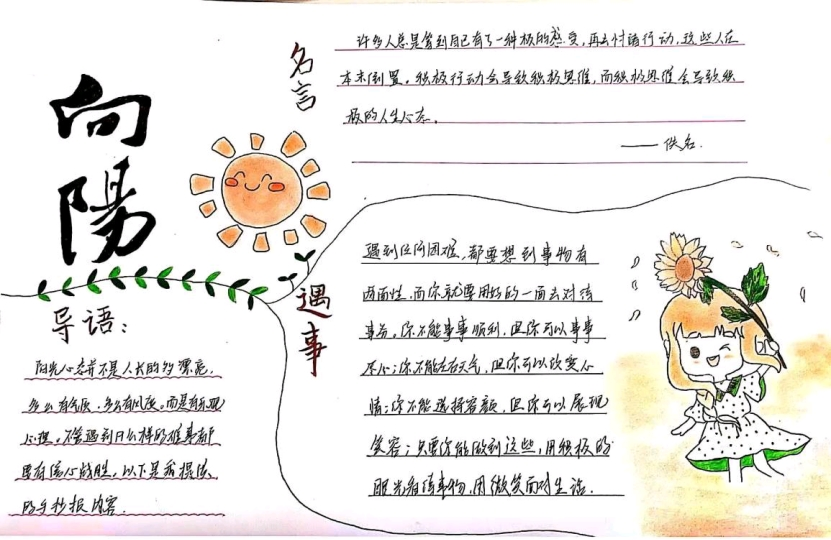 向陽
导语：
阳光心态并不是人长的多漂亮，
多么有气质，多么有风度。而是有乐观
心理。不管遇到什么样的难事都
要有信心战胜，以下是我提供
的手抄报内容．
名言
许多人总是等到自己有了一种积极的感受，再去付诸行动，这些人在
本末倒置。积极行动会导致积极思维，而积极思维会导致积
极的人生心态。
——佚名．
遇事
遇到任何困难，都要想到事物有
两面性，而你就要用好的一面去对待
事务，你不能事事顺利，但你可以事事
尽心；你不能左右天气，但你可以改变心
情；你不能选择容颜，但你可以展现
笑容；只要你能做到这些，用积极的
眼光看待事物，用微笑面对生活．